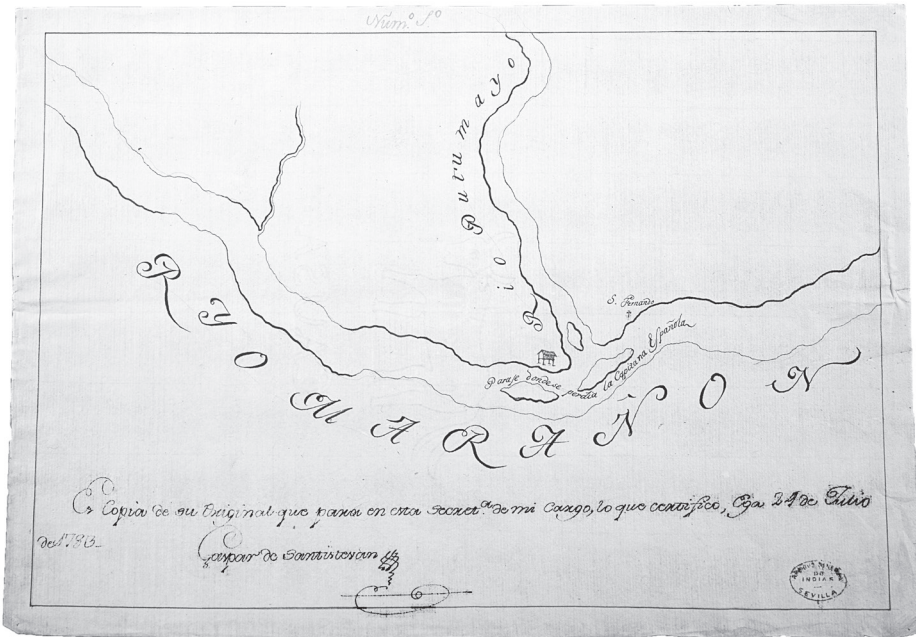 Núm.º 5º
Rio Putumayo
S. Fernando
Paraje donde se perdio la Capitana Española
RYO MARAÑON
Es Copia de su Original que para en esta Secret.ª de mi Cargo, lo que certifico, Ega 24 de Julio
de 1783
Gaspar de Santistevan
ARCHIVO GENERAL
DE
INDIAS
SEVILLA